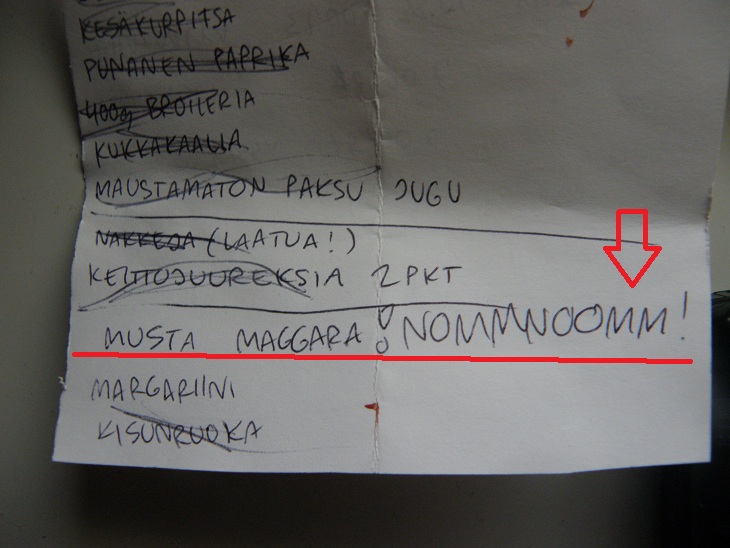 KESÄKURPITSA
PUNANEN PAPRIKA
400g BROILERIA
KUKKAKAALIA
MAUSTAMATON PAKSU JUGU
NAKKEJA (LAATUA!)
KEITTOJUUREKSIA 2 PKT
MUSTA MAGGARA! NOMMNOOMM!
MARGARIINI
KISUNRUOKA